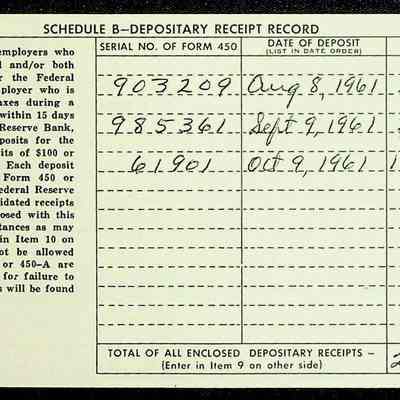 SCHEDULE B—DEPOSITARY RECEIPT RECORD
employers who
and/or both
the Federal
ployer who is
axes during a
within 15 days
Reserve Bank,
posits for the
its of $100 or
Each deposit
Form 450 or
ederal Reserve
idated receipts
osed with this
tances as may
in Item 10 on
ot be allowed
or 450-A are
for failure to
s will be found
SERIAL NO. OF FORM 450
DATE OF DEPOSIT
(LIST IN DATE ORDER)
903209 Aug 8, 1961
985361 Sept 9, 1961
61901 Oct 9, 1961
TOTAL OF ALL ENCLOSED DEPOSITARY RECEIPTS —
(Enter in Item 9 on other side)